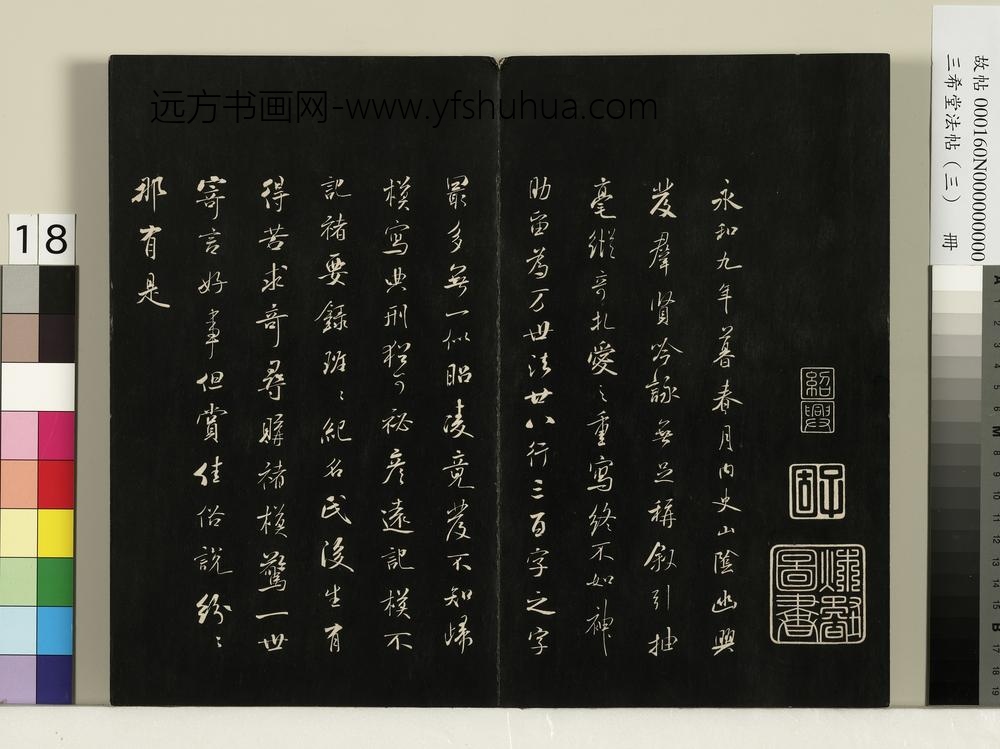 永和九年暮春月内史山陰幽興
發羣賢吟詠無足稱叙引抽
毫縱奇札愛〻重寫終不如神
助留為万世法廿八行三百字之字
最多無一似昭陵竟發不知歸
模寫典刑猶可秘彦遠記模不
記褚要錄班〻紀名氏後生有
得苦求奇尋購褚模驚一世
寄言好事但賞佳俗說紛〻
那有是
紹興
圖書
远方书画网-www.yfshuhua.com
故帖 000160N000000000
三希堂法帖（三） 冊
18